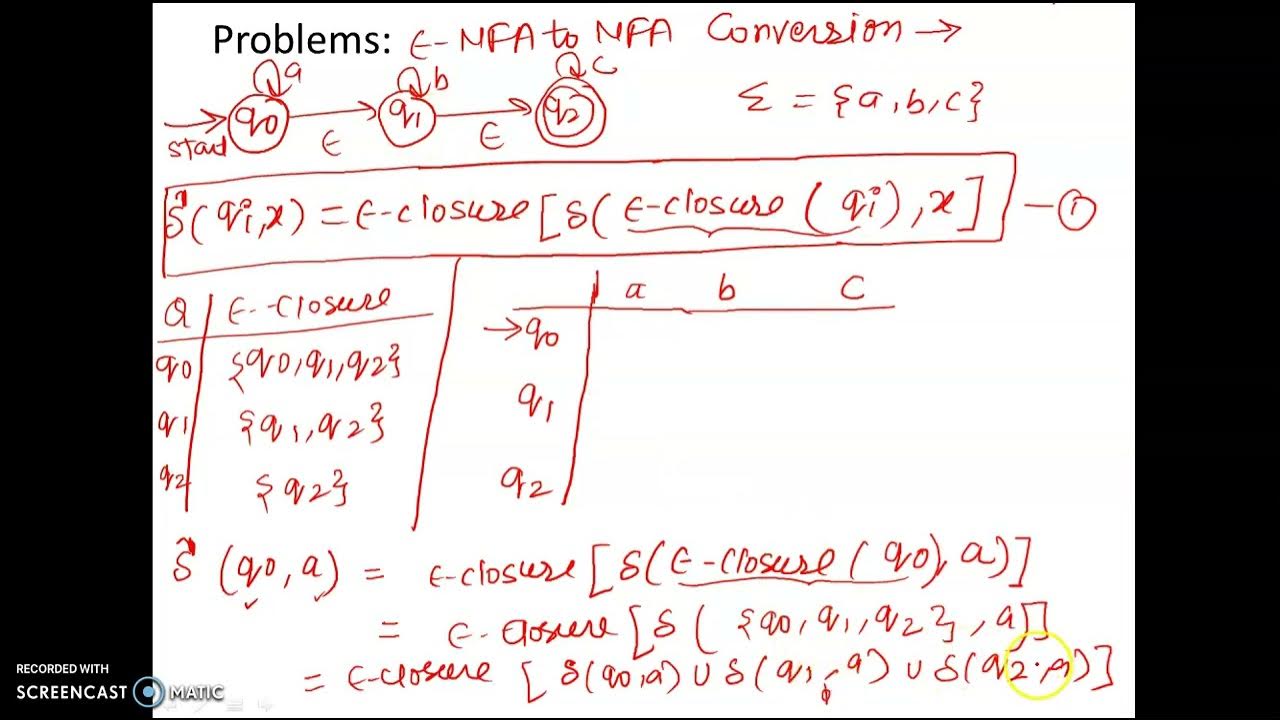 Problems: ε-NFA to NFA Conversion →
a b c
start q0 ε q1 ε q2
Σ = {a, b, c}
δ̂(qi, x) = ε-closure [δ(ε-closure(qi), x] — ①
Q ε-closure
q0 {q0, q1, q2}
q1 {q1, q2}
q2 {q2}
a b c
→q0
q1
q2
δ̂ (q0, a) = ε-closure [δ(ε-closure(q0), a)]
= ε-closure [δ( {q0, q1, q2}, a)]
= ε-closure [δ(q0, a) ∪ δ(q1, a) ∪ δ(q2, a)]
RECORDED WITH
SCREENCAST MATIC